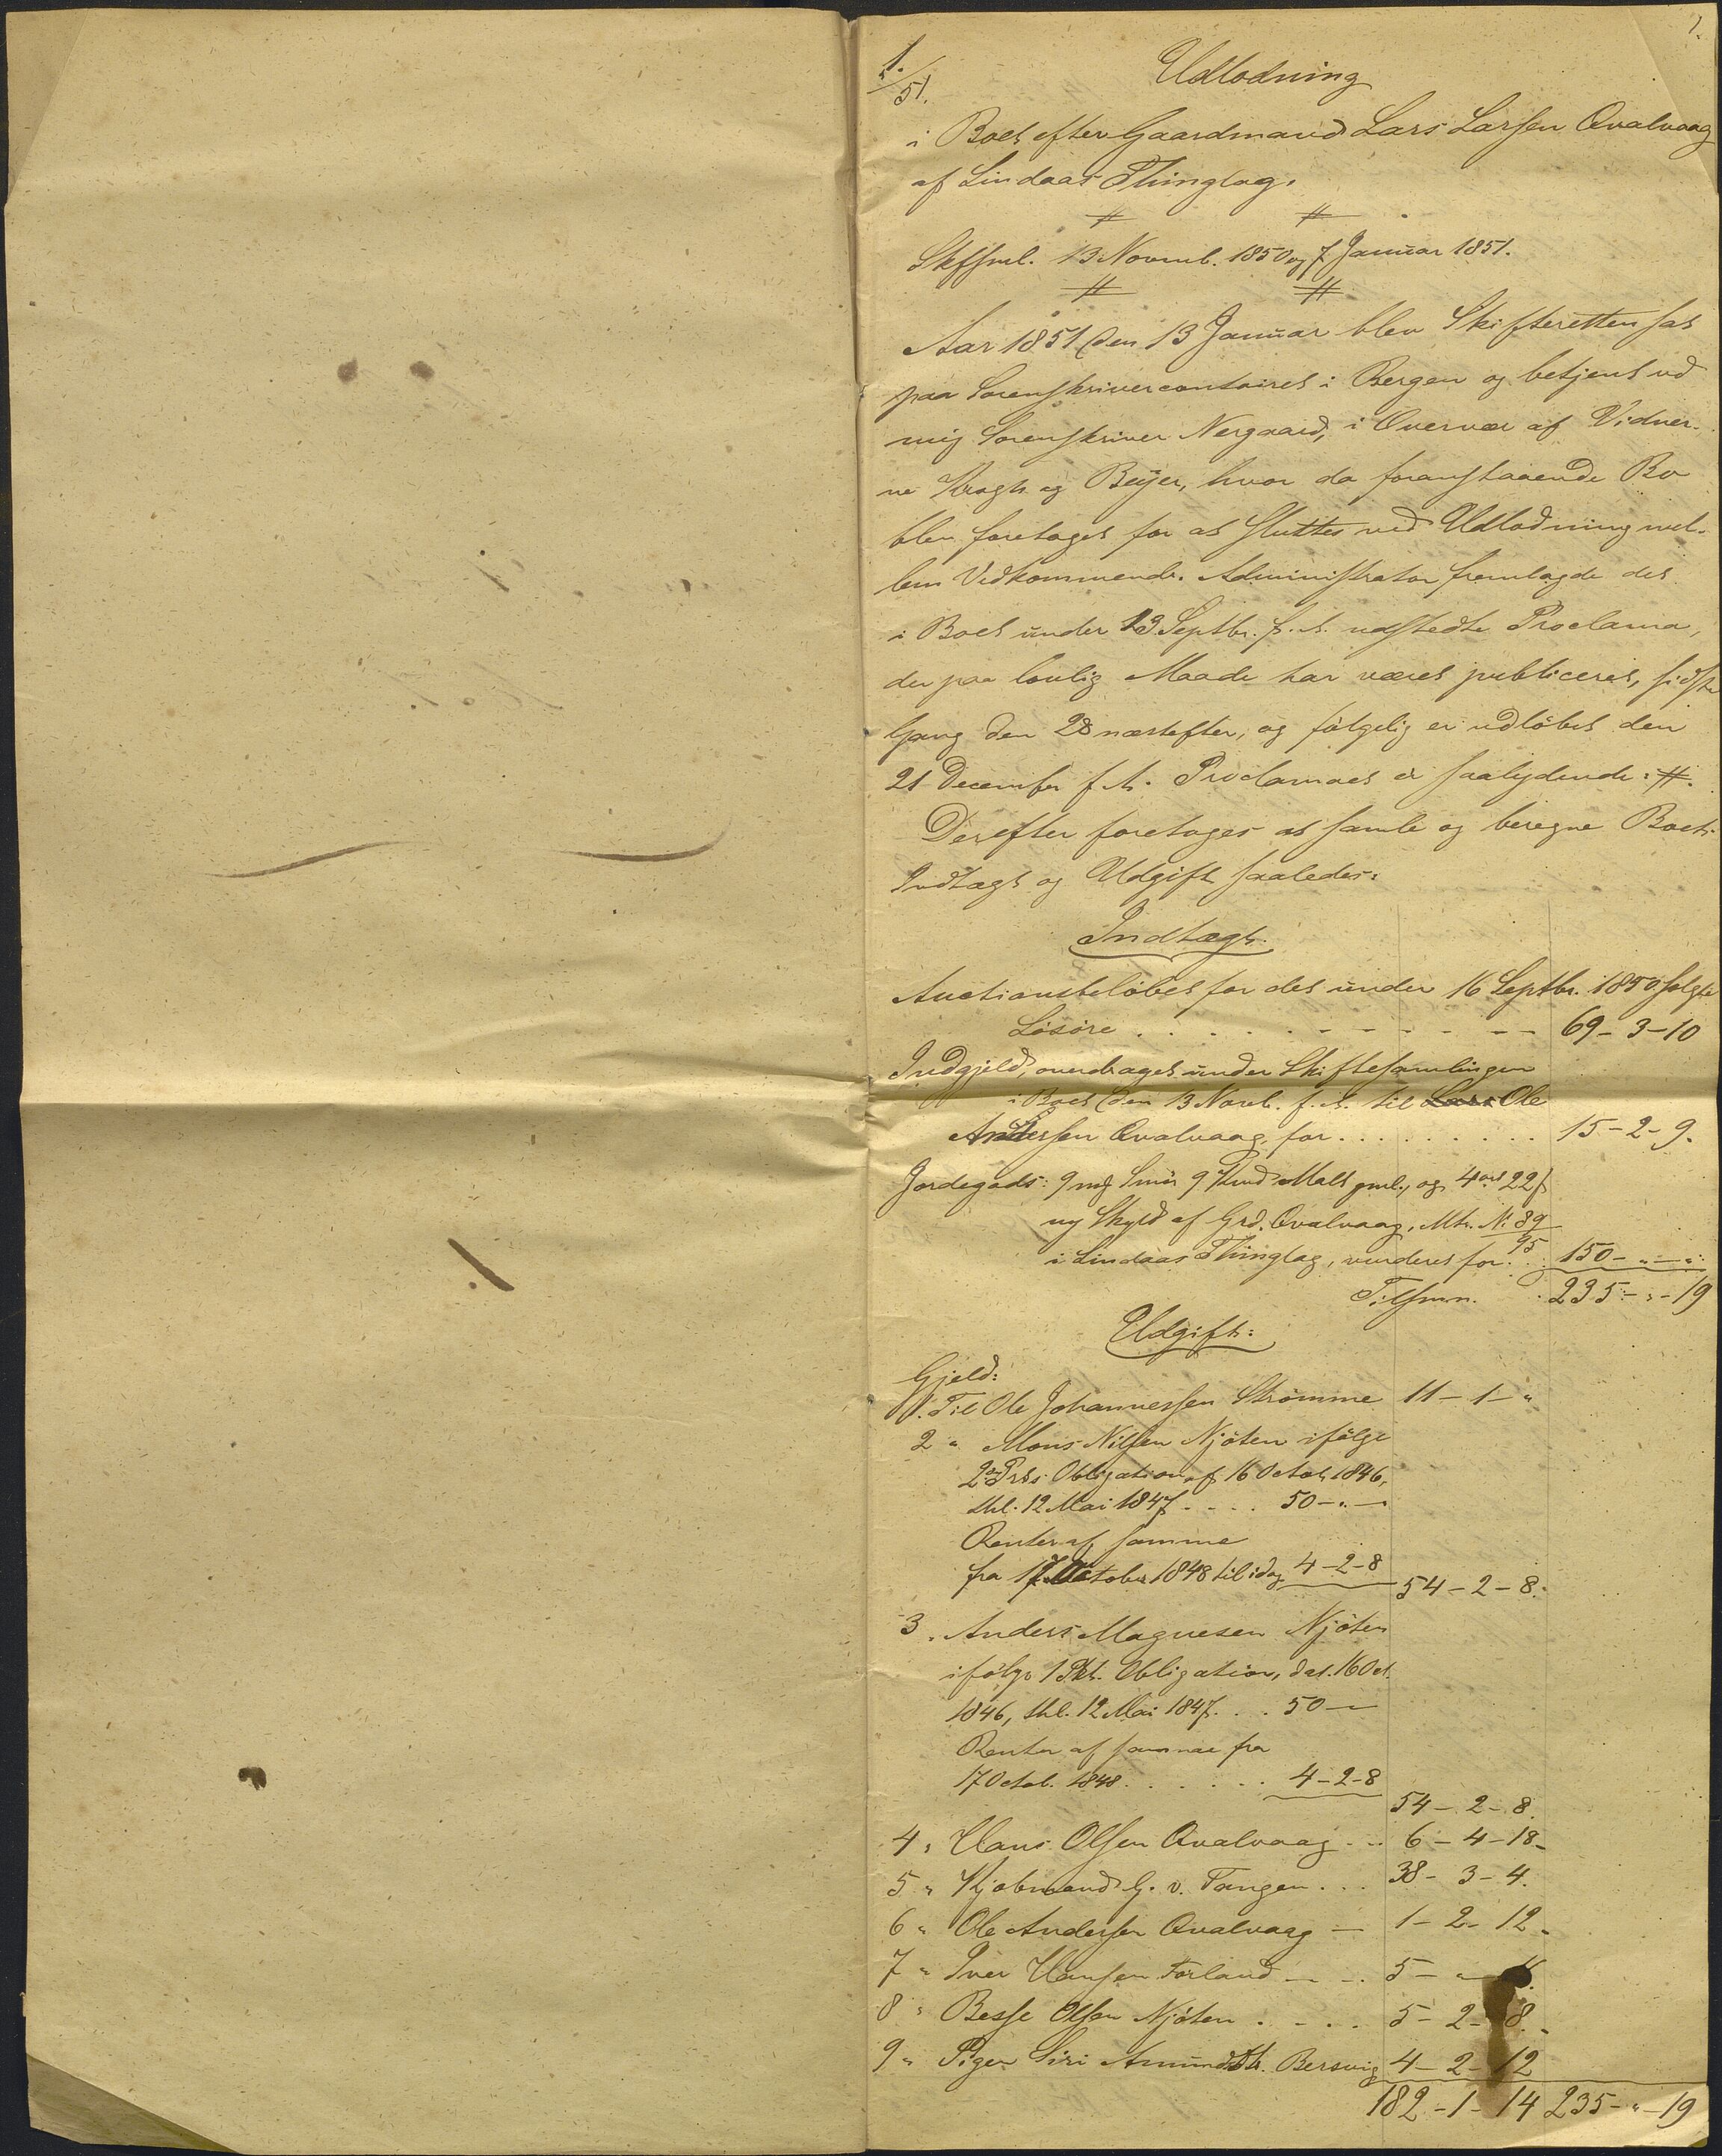 1.
1./51.
Udlodning
i Boet efter Gaardmand Lars Larsen Qvalvaag
af Lindaas Thinglag.
Skfsml. 13 Novmb. 1850 og 7 Januar 1851.
Aar 1851 den 13 Januar blev Skifteretten sat
paa Sorenskrivercontoiret i Bergen og betjent ved
mig Sorenskriver Nergaard, i Overvær af Vidner-
ne Krogh og Beyer, hvor da foranstaaende Bo
blev foretaget for at sluttes ved Udlodning mel-
lem Vedkommende. Administrator fremlagde det
i Boet under 13 Septbr. f. A. udstedte Proclama,
der paa lovlig Maade har været publiceret, sidste
Gang den 28 næstefter, og følgelig er udløbet den
21 December f. A. Proclamaet er saalydende: #.
Derefter foretoges at samle og beregne Boets
Indtægt og Udgift saaledes:
Indtægt.
Auctionsbeløbet for det under 16 Septbr. 1850 solgte
Løsøre . . . . . . 69 - 3 - 10
Indgjeld, overdraget under Skiftesamlingen
i Boet den 13 Novb. f. A. til Lars Ole
Andersen Qvalvaag, for . . . . . . . . 15 - 2 - 9.
Jordegods: 9 mg Smør 9 Kud Malt gml., og 4 ort 22 ß
ny Skyld af Grd. Qvalvaag, Mtr. No 89/95
i Lindaas Thinglag, vurderet for . . 150 - " - "
Tilsmn. 235 - " - 19
Udgift:
Gjeld:
1. Til Ole Johannessen Strømme 11 - 1 - "
2 " Mons Nilsen Njøten ifølge
2den Prts. Obligation af 16 Octob. 1846,
thl. 12 Mai 1847 . . . . 50 - " - "
Renter af samme
fra 17 October 1848 til idag 4 - 2 - 8 54 - 2 - 8.
3 " Anders Magnesen Njøten
ifølge 1 Pkt. Obligation, dat. 16 Oct.
1846, thl. 12 Mai 1847 . . . 50 -
Renter af samme fra
17 Octob. 1848 . . . . . . 4 - 2 - 8
54 - 2 - 8.
4 " Hans Olsen Qvalvaag . . . 6 - 4 - 18 -
5 " Kjøbmand G. v. Tangen . . . 38 - 3 - 4.
6 " Ole Andersen Qvalvaag - 1 - 2 - 12 -
7 " Iver Hansen Førland - - . 5 - " -
8 " Besse Olsen Njøten . - . . 5 - 2 - 8. -
9 " Pigen Siri Amundsdtr. Bersvig 4 - 2 - 12
182 - 1 - 14 235 - " - 19